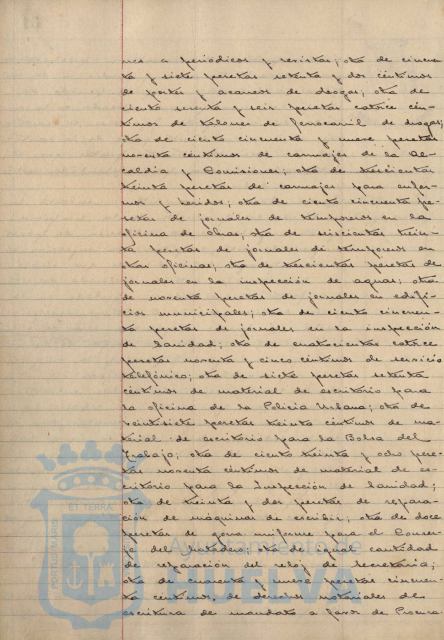 nes a periódicos y revistas; otra de cincuen-
ta y siete pesetas setenta y dos céntimos
de portes y acarreos de drogas; otra de
ciento sesenta y seis pesetas catorce cén-
timos de talones de ferrocarril de drogas;
otra de ciento cincuenta y nueve pesetas
noventa céntimos de carruajes de la Al-
caldía y Comisiones; otra de trescientas
treinta pesetas de carruajes para enfer-
mos y heridos; otra de ciento cincuenta pe-
setas de jornales de temporeros en la
oficina de Obras; otra de seiscientas trein-
ta pesetas de jornales de temporeros en
otras oficinas; otra de trescientas pesetas de
jornales en la inspección de aguas; otra
de noventa pesetas de jornales en edifi-
cios municipales; otra de ciento cincuen-
ta pesetas de jornales en la inspección
de Sanidad; otra de cuatrocientas catorce
pesetas noventa y cinco céntimos de servicio
telefónico; otra de siete pesetas setenta
céntimos de material de escritorio para
la oficina de la Policía Urbana; otra de
veintisiete pesetas treinta céntimos de ma-
terial de escritorio para la Bolsa del
Trabajo; otra de ciento treinta y ocho pese-
tas noventa céntimos de material de es-
critorio para la Inspección de Sanidad;
otra de treinta y dos pesetas de repara-
ción de máquinas de escribir; otra de doce
pesetas de gorra uniforme para el Conser-
je del Matadero; otra de igual cantidad
de reparación del reloj de Secretaría;
otra de cuarenta y nueve pesetas cincuen-
ta céntimos, de derechos notariales de
escritura de mandato a favor de Procura
PORTUS MARIS
ET TERRAE
Ayuntamiento de
HUELVA